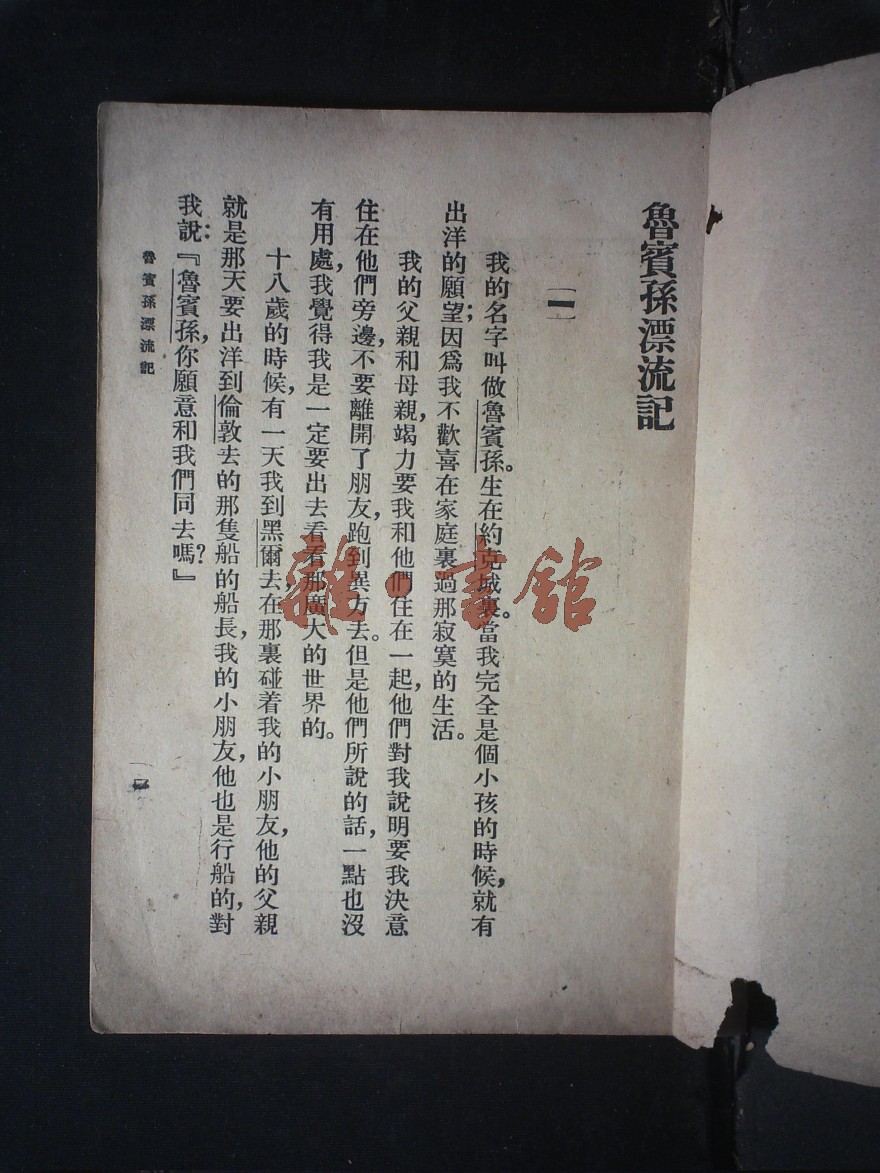 魯賓孫漂流記
〔一〕
我的名字叫做魯賓孫。生在約克城裏。當我完全是個小孩的時候，就有
出洋的願望；因爲我不歡喜在家庭裏過那寂寞的生活。
我的父親和母親，竭力要我和他們住在一起，他們對我說明要我決意
住在他們旁邊，不要離開了朋友，跑到異方去。但是他們所說的話，一點也沒
有用處，我覺得我是一定要出去看看那廣大的世界的。
十八歲的時候，有一天我到黑爾去，在那裏碰着我的小朋友，他的父親
就是那天要出洋到倫敦去的那隻船的船長，我的小朋友，他也是行船的，對
我說：『魯賓孫，你願意和我們同去嗎？』
魯賓孫漂流記
雜·書館